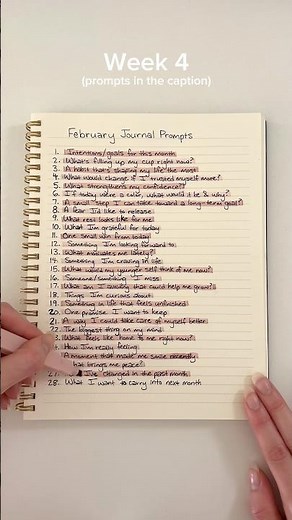 Week 4
(prompts in the caption)
February Journal Prompts
1. Intentions/goals for this month
2. What's filling up my cup right now?
3. A habit that's shaping my life the most
4. What would change if I trusted myself more?
5. What strengthens my confidence?
6. If today were a color, what would it be & why?
7. A small step I can take toward a long-term goal?
8. A fear I'd like to release
9. What rest looks like for me
10. What I'm grateful for today
11. One small win from today
12. Something I'm looking forward to
13. What motivates me lately?
14. Something I'm craving in life
15. What would my younger self think of me now?
16. Someone/something I miss
17. What am I avoiding that could help me grow?
18. Things I'm curious about
19. Something in life that feels unfinished
20. One promise I want to keep
21. A way I could take care of myself better
22. The biggest thing on my mind
23. What feels like home to me right now?
4. How I'm really feeling
A moment that made me smile recently
hat brings me peace?
27. I've changed in the past month
28. What I want to carry into next month